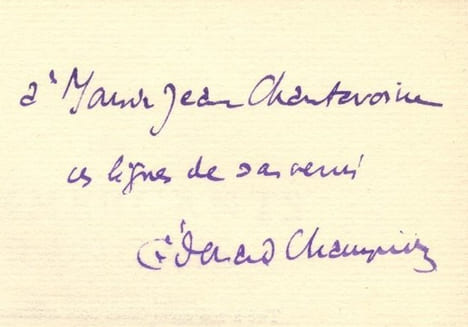 à Monsieur Jean Chantavoine
ces lignes de souvenir
Édouard Champion